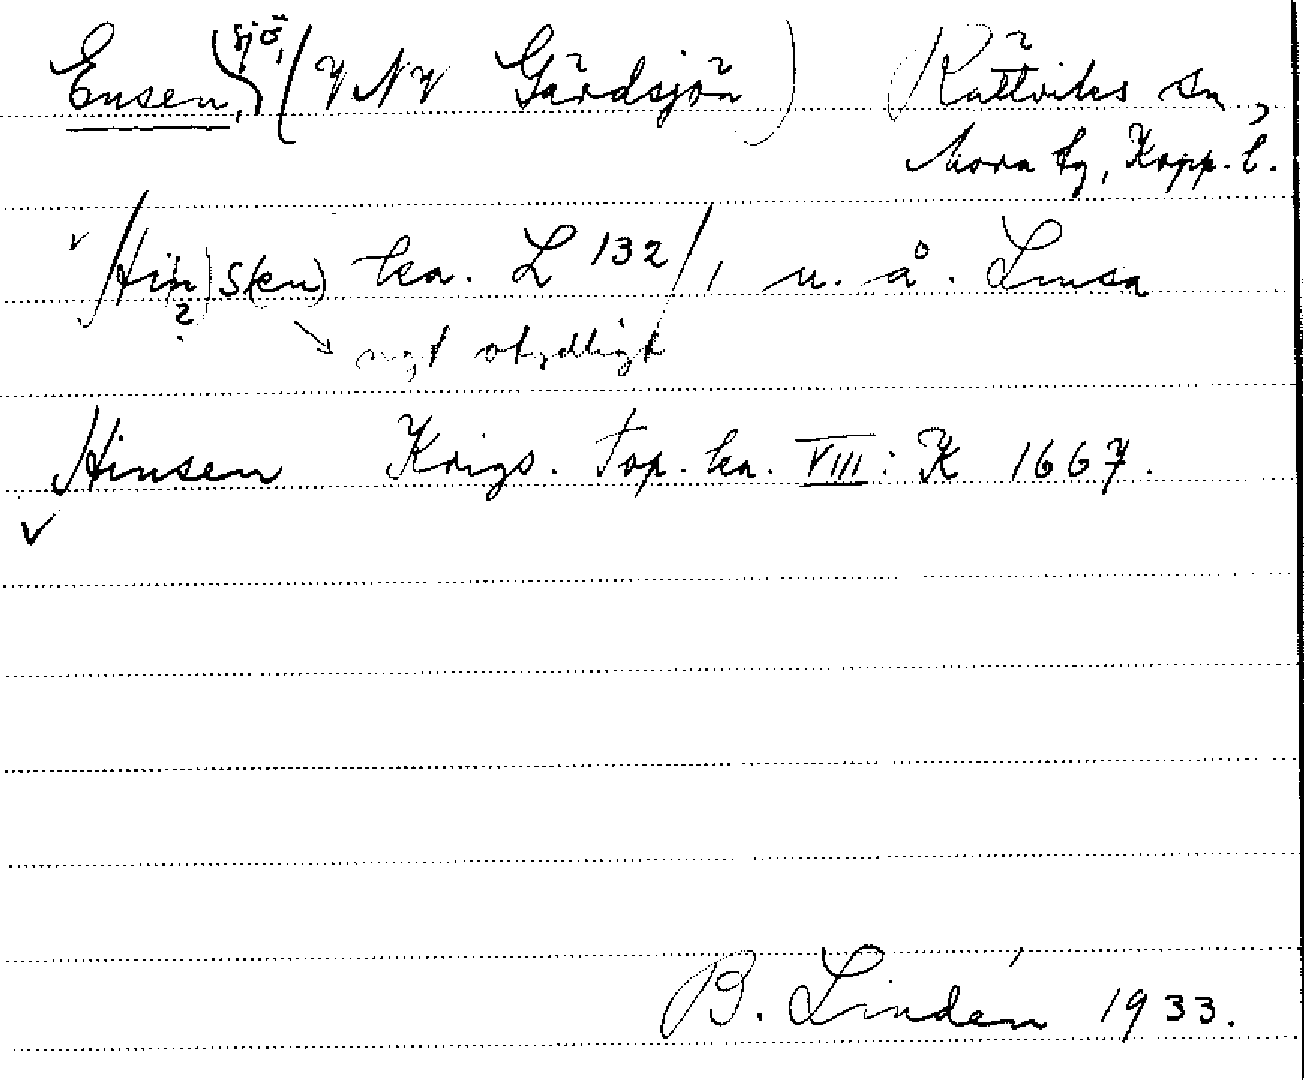 Ensen, sjö, (VNV Gärdsjön) Rättviks sn,
Mora tg, Kopp. l.
/Hi(n)s(en) ka. L 132/, u. å. Limsa
?
ngt otydligt
Hinsen Krigs. Top. ka. VIII: K 1667.
B. Lindén 1933.